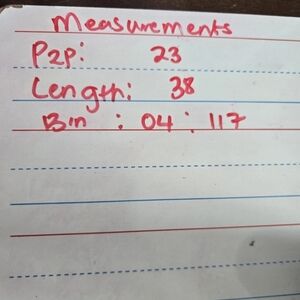 Measurements
P2P: 23
Length: 38
Bin : 04 : 117